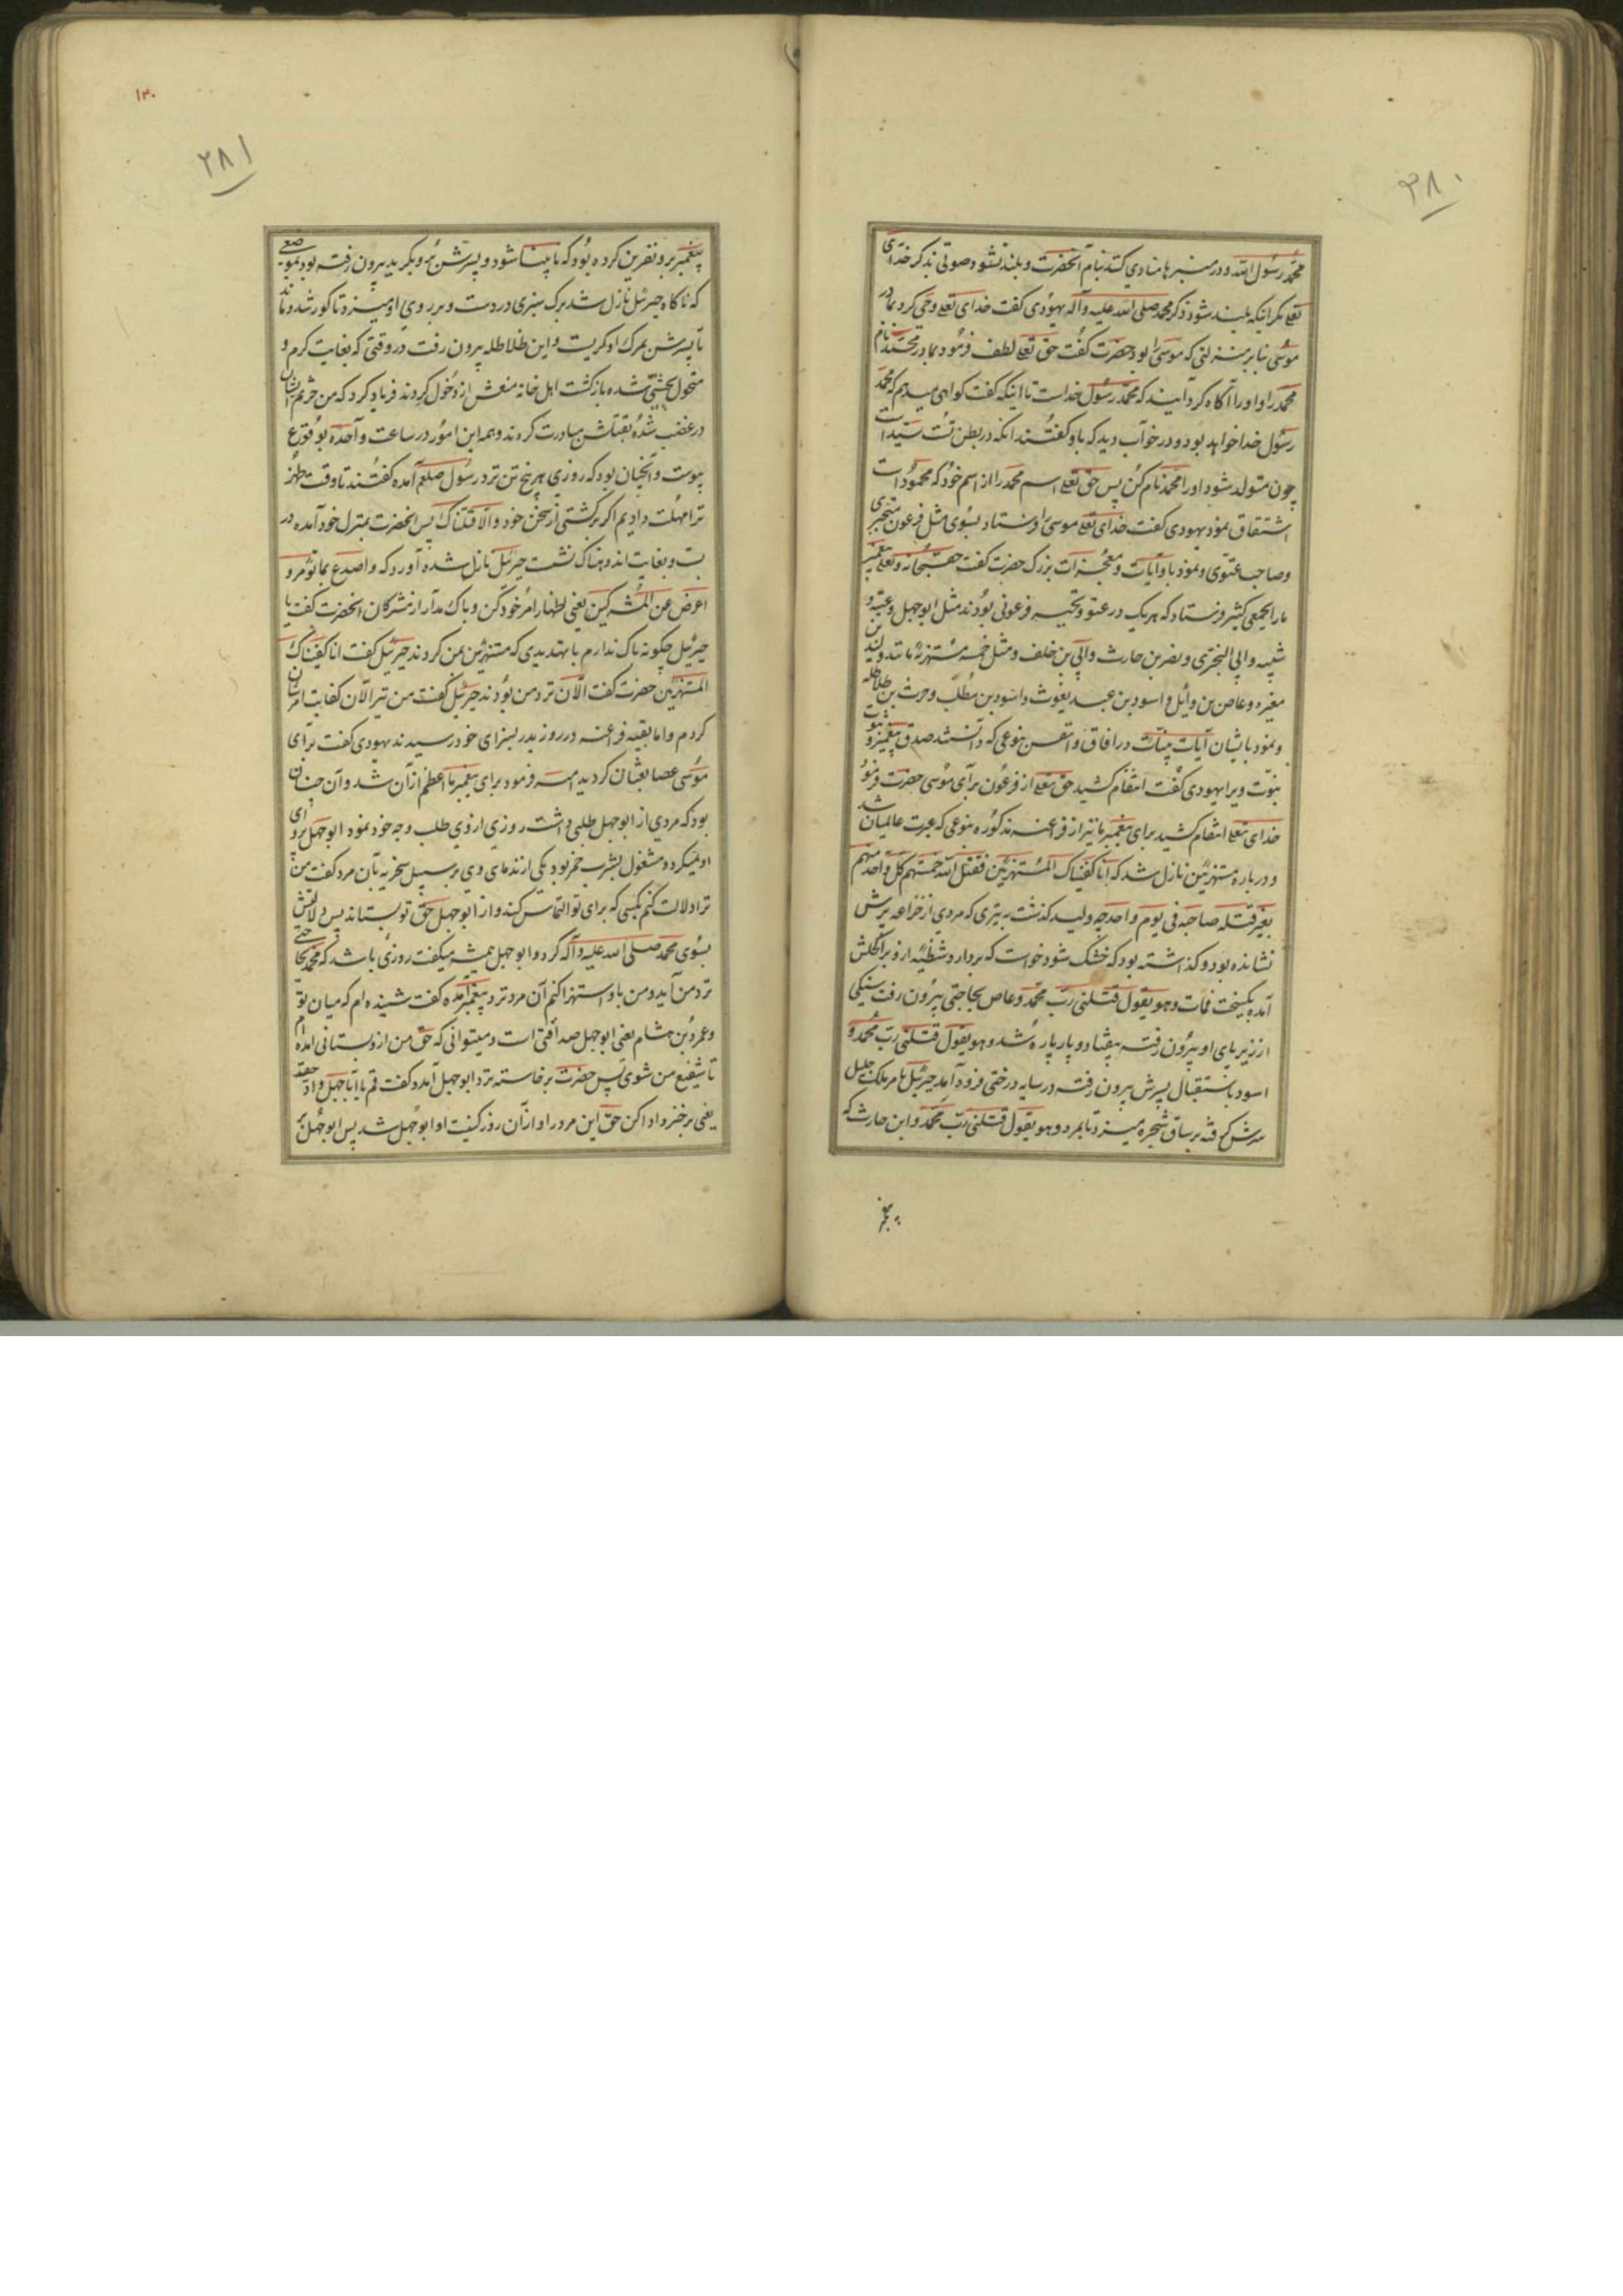 ۳۸۰
محمد رسول الله و در منبرها منادی کنند بنام آنحضرت و بلند نشود صوتی بذکر خدای
تعلی مگر اینکه بلند شود ذکر محمد صلی الله علیه وآله یهودی گفت خدای تعلی وحی کرد بمادر
موسی بنا بر منزلتی که موسی را بود حضرت گفت حق تعلی لطف فرمود بمادر محمد نام
محمد را و او را آگاه گردانید که محمد رسول خداست تا اینکه گفت گواهی میدهم که محمد
رسول خدا خواهد بود و در خواب دید که باو گفتند آنکه در بطن تست سید است
چون متولد شود او را محمد نام کن پس حق تعلی اسم محمد را از اسم خود که محمود است
اشتقاق نمود یهودی گفت خدای تعلی موسی را فرستاد بسوی مثل فرعون متجبری
و صاحب عتوی و نمود باو آیات و معجزات بزرگ حضرت گفت حق سبحانه و تعلی پیغمبر
ما را بجمعی کثیر فرستاد که هر یک در عتو و تجبر فرعونی بودند مثل ابوجهل و عتبه و
شیبه و ابی البختری و نضر بن حارث و ابی بن خلف و مثل خمسه مستهزئه مانند ولید بن
مغیره و عاص بن وائل و اسود بن عبد یغوث و اسود بن مطلب و حرث بن طلاطله
و نمود بایشان آیات بینات در افاق و انفس بنوعی که دانستند صدق پیغمبر و ثبوت
نبوت ویرا یهودی گفت انتقام کشید حق تعلی از فرعون برای موسی حضرت فرمود
خدای تعلی انتقام کشید برای پیغمبر ما نیز از فراعنه مذکوره بنوعی که عبرت عالمیان شد
و درباره مستهزئین نازل شد که انا کفیناک المستهزئین فقتل الله خمستهم کل واحد منهم
بغیر قتله صاحبه فی یوم واحد چه ولید گذشت به تیری که مردی از خزاعه پرش
نشانده بود و گذاشته بود که خشک شود خواست که بردارد شظیه از و بر اکحلش
آمده بگسیخت فمات و هو یقول قتلنی رب محمد و عاص بحاجتی بیرون رفت سنگی
از زیر پای او بیرون رفته بیفتاد و پاره پاره شد و هو یقول قتلنی رب محمد و
اسود باستقبال پسرش بیرون رفته در سایه درختی فرود آمد جبرئیل بامر ملک جلیل
سرش گرفته بر ساق شجره میزد تا بمرد و هو یقول قتلنی رب محمد و ابن حارث که
پیغمبر
۱۳۰
۲۸۱
پیغمبر برو نفرین کرده بود که نابینا شود و پسرش مرد بگرید بیرون رفته بود بموضعی
که ناگاه جبرئیل نازل شد برگ سبزی در دست و بر روی او میزد تا کور شد و ماند
تا پسرش بمرگ او گریست و ابن طلاطله بیرون رفت در وقتی که بغایت گرم و
متحول بحبشی شده بازگشت اهل خانه منعش از دخول کردند فریاد کرد که من حرثم ایشان
در غضب شده بقتلش مبادرت کردند و همه این امور در ساعت واحده بوقوع
پیوست و آنچنان بود که روزی هر پنج تن نزد رسول صلعم آمده گفتند تا وقت ظهر
ترا مهلت دادیم اگر برگشتی از سخن خود و الا قتلناک پس آنحضرت بمنزل خود آمده در
بست و بغایت اندوهناک نشست جبرئیل نازل شده آورد که و اصدع بما تومر و
اعرض عن المشرکین یعنی اظهار امر خود کن و باک مدار از مشرکان آنحضرت گفت یا
جبرئیل چگونه باک ندارم با تهدیدی که مستهزئین بمن کردند جبرئیل گفت انا کفیناک
المستهزئین حضرت گفت الان نزد من بودند جبرئیل گفت من نیز الان کفایت امر ایشان
کردم و اما بقیه فراعنه در روز بدر بسزای خود رسیدند یهودی گفت برای
موسی عصا بثعبان گردید حضرت فرمود برای پیغمبر ما اعظم از آن شد و آن چنان
بود که مردی از ابوجهل طلبی داشت روزی از وی طلب وجه خود نمود ابوجهل پروای
او نمیکرد و مشغول بشرب خمر بود یکی از ندمای وی بر سبیل سخریه بآن مرد گفت من
ترا دلالت کنم بکسی که برای تو التماس کند و از ابوجهل حق تو بستاند پس دلالتش
بسوی محمد صلی الله علیه وآله کرد و ابوجهل همیشه میگفت روزی باشد که محمد بحاجتی
نزد من آید و من باو استهزا کنم آن مرد نزد پیغمبر آمده گفت شنیده ام که میان تو
و عمرو بن هشام یعنی ابوجهل صداقتی است و میتوانی که حق من از و بستانی آمده ام
تا شفیع من شوی پس حضرت برخاسته نزد ابوجهل آمد و گفت قم یا اباجهل واد حقه
یعنی برخیز و ادا کن حق این مرد را و از آن روز کنیت او ابوجهل شد پس ابوجهل